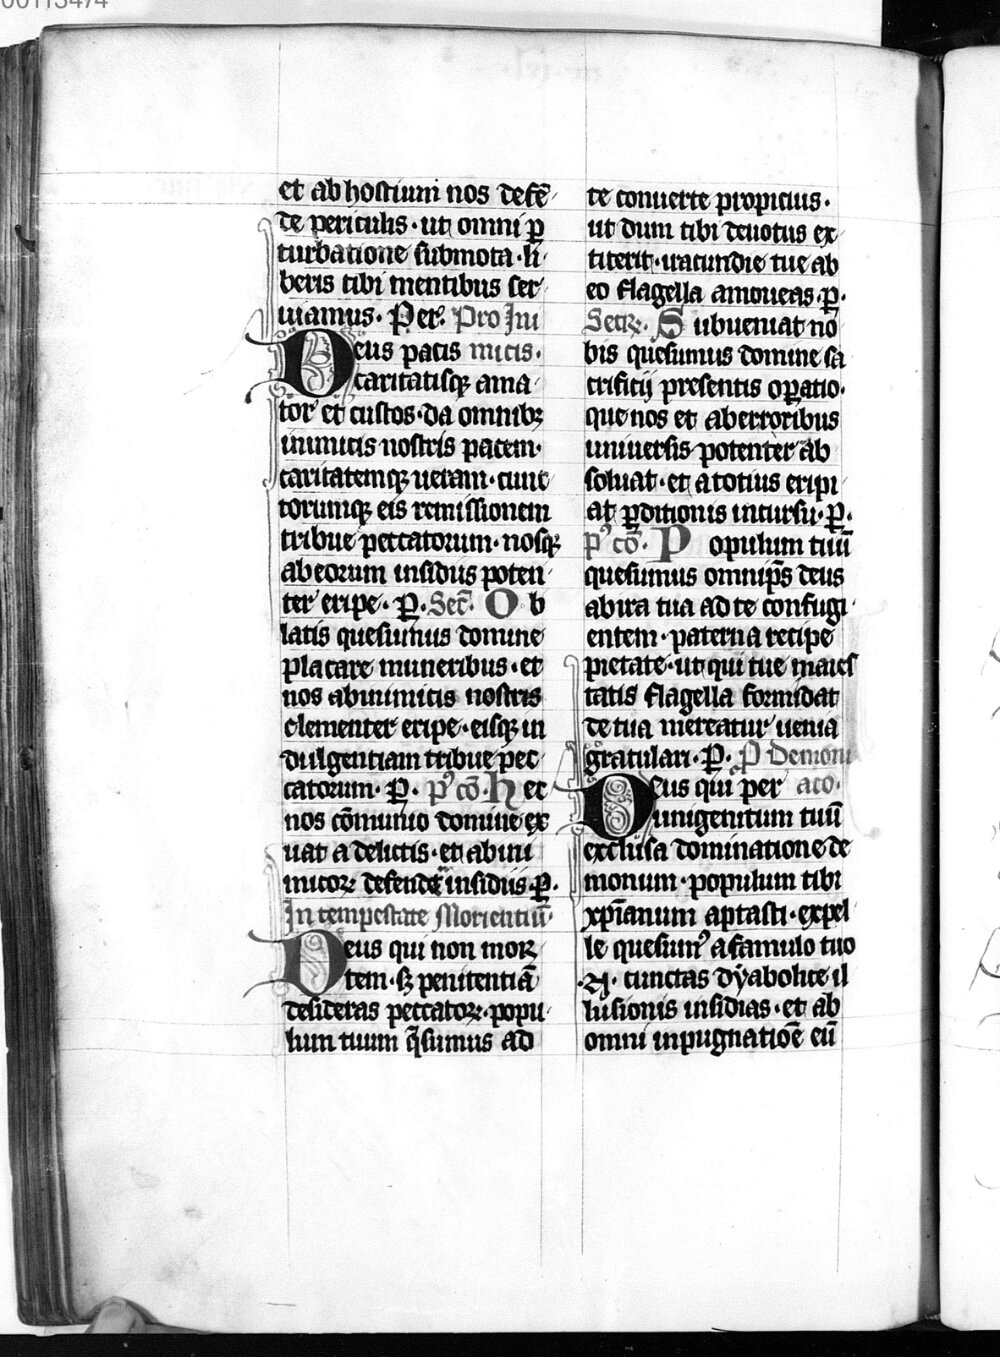 00113474
et ab hostium nos defē
de periculis · ut omni ꝑ
turbatione submota · li
beris tibi mentibus ser
uiamus · Per. Pro Ini
Deus pacis micis ·
caritatisqꝫ ama
tor et custos · da omnibꝫ
inimicis nostris pacem ·
caritatemqꝫ ueram · cunc
torumqꝫ eis remissionem
tribue peccatorum · nosqꝫ
ab eorum insidiis poten
ter eripe · P̲. Secr̄. Ob
latis quesumus domine
placare muneribus · et
nos ab inimicis nostris
clementer eripe · eisqꝫ in
dulgentiam tribue pec
catorum · P̲. pꝰ cō. Hec
nos cōmunio domine ex
uat a delictis · et ab ini
micoꝝ defendat insidiis · P̲.
In tempestate Morientiū ·
Deus qui non moꝝ
tem · sꝫ penitentiā
desideras peccatoꝝ · popu
lum tuum q̄sumus ad
te conuerte propicius ·
ut dum tibi deuotus ex
titerit · iracundie tue ab
eo flagella amoueas · P̲.
Secꝝ. Subueniat no
bis quesumus domine sa
crificij presentis oꝑatio ·
que nos et ab erroribus
uniuersis potenter ab
soluat · et a totius eripi
at ꝑditionis incursu · P̲.
pꝰ cō. Populum tuū
quesumus omnip̄s deus
ab ira tua ad te confugi
entem · paterna recipe
pietate · ut qui tue maies
tatis flagella formidat
de tua mereatur uenia
gratulari · P̲. P Demoni
Deus qui per aco ·
unigenitum tuū
exclusa dominatione de
monum · populum tibi
xp̄ianum aptasti · expel
le quesumꝰ a famulo tuo
· N · cunctas dyabolice il
lusionis insidias · et ab
omni inpugnatiōe eū